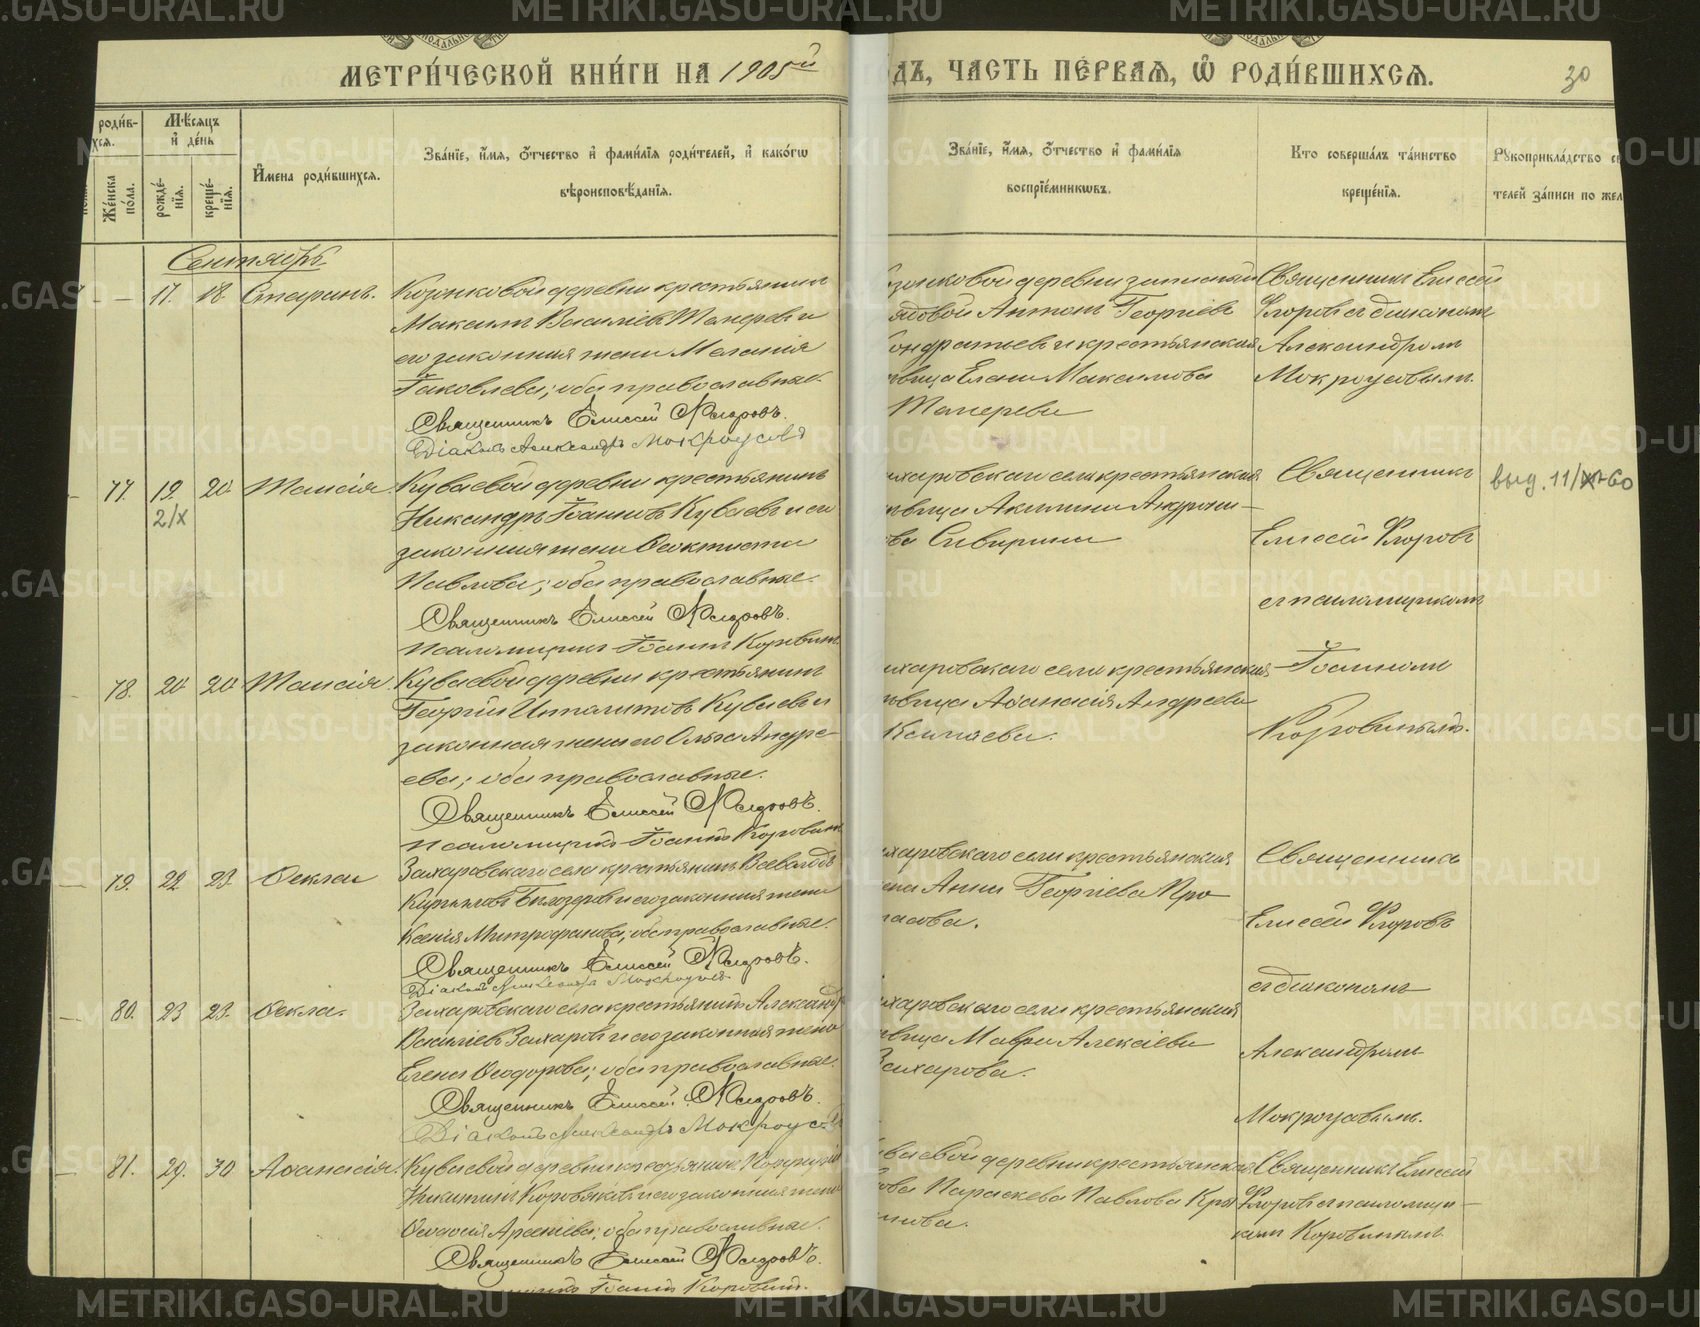 METRIKI.GASO-URAL.RU
МЕТРИ́ЧЕСКОЙ КНИ́ГИ НА 1905ый
ДЪ, ЧАСТЬ ПЕ́РВАЯ, Ѽ РОДИ́ВШИХСЯ.
30
роди́в-
хся.
Мѣ́сяцъ
и҆ де́нь
Же́нска по́ла.
рожде́-нїя.
креще́-нїя.
И҆́мена роди́вшихся.
Зва́нїе, и҆́мя, ѻ҆́тчество и҆ фами́лїя роди́телей, и҆ како́гѡ
вѣроисповѣ́данїя.
Зва́нїе, и҆́мя, ѻ҆́тчество и҆ фами́лїя
воспрїе́мникѡвъ.
Кто соверша́лъ та́инство
креще́нїя.
Рꙋкоприкла́дство св
телей за́писи по жел
Сентябрь
— — 17. 18. Степанъ. Козонковой деревни крестьянинъ
Максимъ Васильевъ и
его законная жена Меланія
Іаковлева; оба православные.
Священникъ Елисей Флоровъ.
Діаконъ Александръ Мокроусовъ
зонковой деревни запасный
ядовой Антонъ Георгіевъ
ондратьевъ и крестьянская
вица Елена Максимова
Священникъ Елисей
Флоровъ съ діакономъ
Александромъ
Мокроусовымъ.
77. 19. 20. Таисія. Куваевой деревни крестьянинъ
2/X
Никандръ Іоанновъ Куваевъ и его
законная жена Ѳеоктиста
Павлова; оба православные.
Священникъ Елисей Флоровъ.
Псаломщикъ Іоаннъ Коровинъ.
ахаровскаго села крестьянская
вица Акилина Андрони-
ова
Священникъ
Елисей Флоровъ
съ псаломщикомъ
Іоанномъ
Коровинымъ.
выд. 11/ 60
78. 20 20 Таисія. Куваевой деревни крестьянинъ
Георгій Ипполитовъ Куваевъ и
законная жена его Ольга Андре-
ева; оба православные.
Священникъ Елисей Флоровъ.
Псаломщикъ Іоаннъ Коровинъ
ахаровскаго села крестьянская
вица Аѳанасія Андреева
79. 22 23. Ѳекла Захаровскаго села крестьянинъ Всеволодъ
Кирилловъ Бѣлозеровъ и его законная жена
Ксенія Митрофанова; оба православные.
Священникъ Елисей Флоровъ.
Діаконъ Александръ Мокроусовъ
ахаровскаго села крестьянская
ена Анна Георгіева Про
асова.
Священникъ
Елисей Флоровъ
съ діакономъ
Александромъ
Мокроусовымъ.
80. 23 23. Ѳекла. Захаровскаго села крестьянинъ Александръ
Васильевъ Захаровъ и его законная жена
Елена Ѳеодорова; оба православные.
Священникъ Елисей Флоровъ.
Діаконъ Александръ Мокроусовъ
ахаровскаго села крестьянская
вица Мавра Алексіева
Захарова.
81. 29. 30 Аѳанасія. Куваевой деревни крестьянинъ Порфирій
Никитинъ Коровяковъ и его законная жена
Ѳеодосія Арсеніева; оба православные.
Священникъ Елисей Флоровъ.
Іоаннъ Коровинъ.
ваевой деревни крестьянская
ова Параскева Павлова
Священникъ Елисей
Флоровъ съ псаломщи-
комъ Коровинымъ.